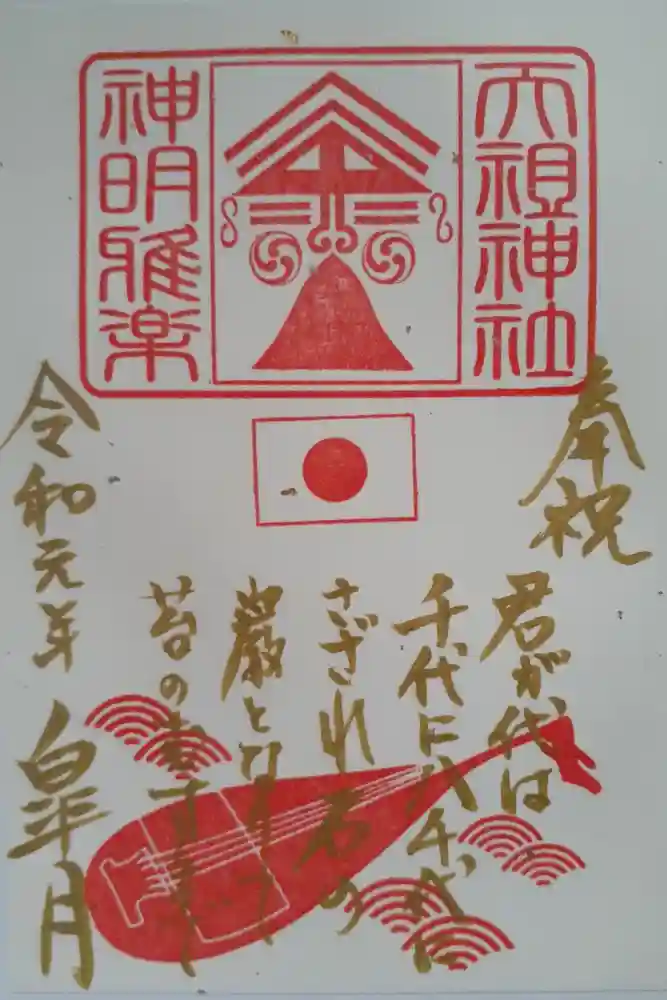 天祖神社
神明雅楽
奉祝
君が代は
千代に八千代に
さざれ石の
巌となりて
苔のむすまで
令和元年 皐月